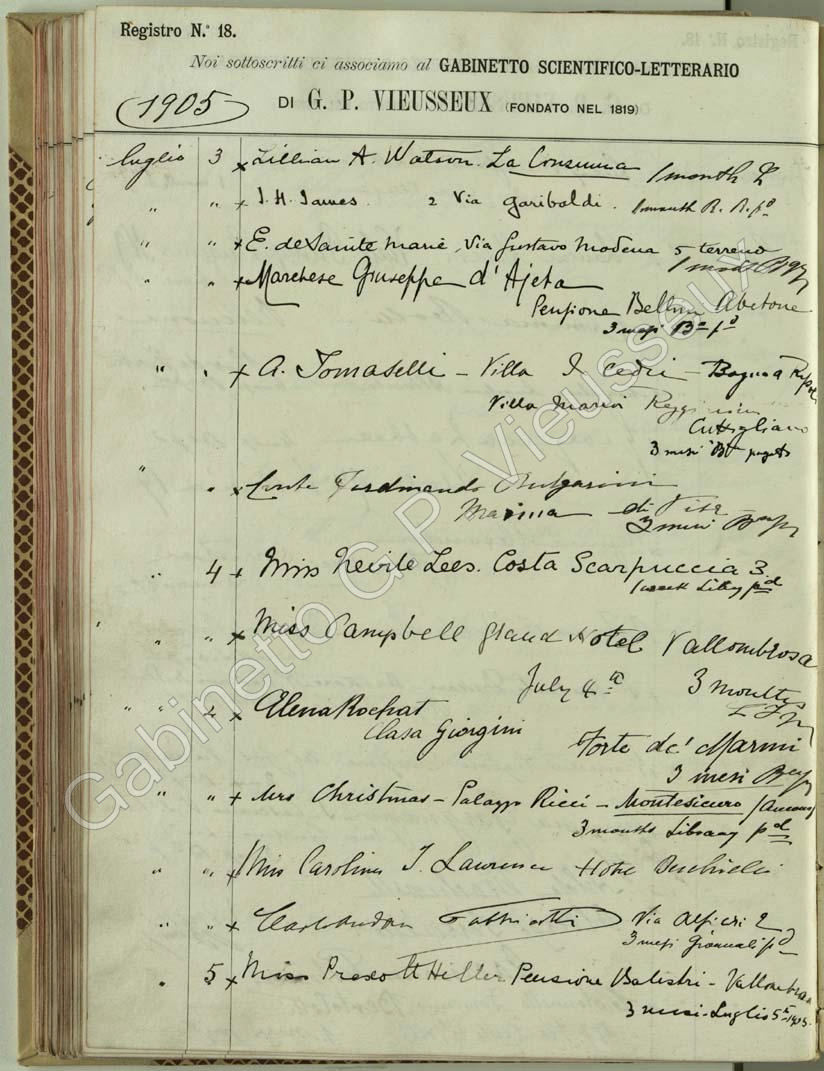 Registro N.º 18.
Noi sottoscritti ci associamo al GABINETTO SCIENTIFICO-LETTERARIO
1905
DI G. P. VIEUSSEUX (FONDATO NEL 1819)
luglio 3 x Lillian A. Watson. La Consuma 1 month
" " x J. H. James. 2 Via Garibaldi. 1 month R. R. pd
" " x E. de Sainte Marie, Via Gustavo Modena 5 terreno
" " x Marchese Giuseppe d'Ajeta
Pensione Bellini Abetone
3 mesi
" " x A. Tomaselli - Villa I cedri - Bagno a
Villa Maria
Cutigliano
3 mesi
" " x Conte Ferdinando Bulgarini
Marina di Pisa
3 mesi
" 4 x Miss Nevile Lees. Costa Scarpuccia 3
1 week pd
" " x Miss Campbell Grand Hotel Vallombrosa
July 4th 3 months
" " 4 x Elena Rochat
Casa Giorgini
Forte de' Marmi
3 mesi
" " x Mrs Christmas - Palazzo Ricci - Montesicuro (Ancona)
3 months Library pd
" " x Miss Carolina J. Lawrence Hotel
" " x Via Alfieri 2
3 mesi Giornali pd
" 5 x Miss Prescott Hiller Pensione Balistri - Vallombrosa
3 mesi - Luglio 5 - 1905.
Gabinetto G.P. Vieusseux